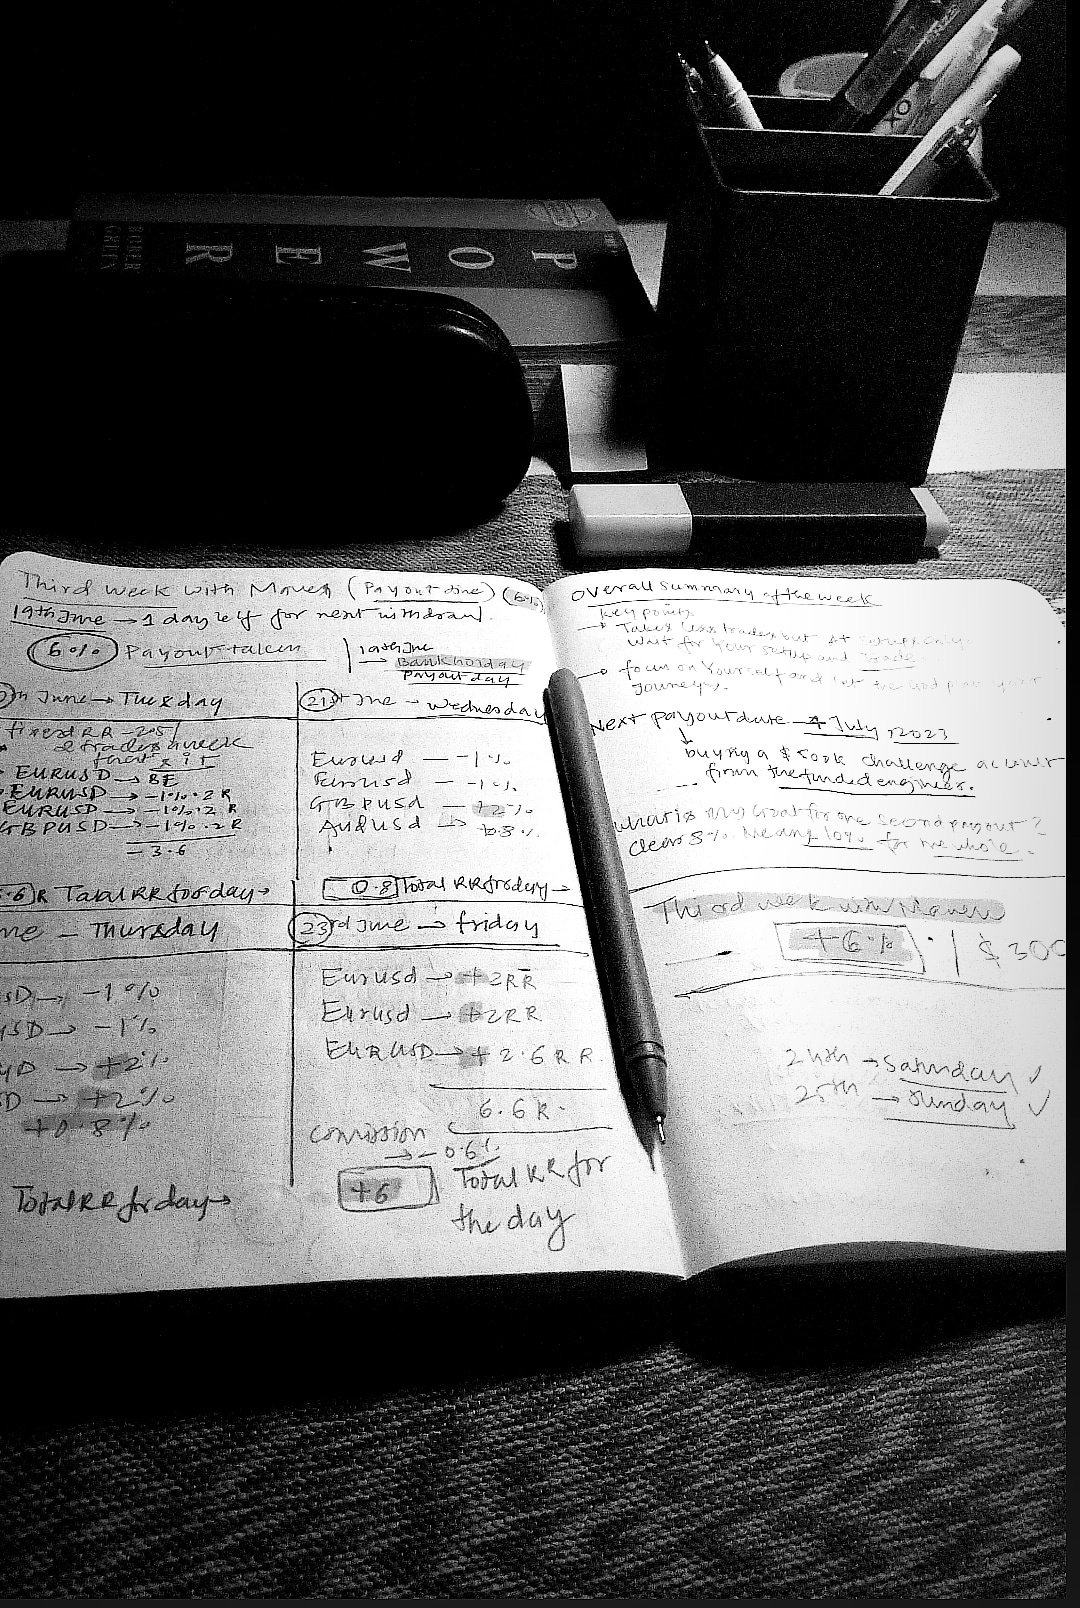 POWER
ROBERT GREEN
Third Week with Maven (Payout time) (6%)
19th June → 1 day left for next withdraw.
6% Payout taken
19th June
→ Bank holiday
Payout day
June → Tuesday
fixed RR - 2.5
2 trades a week
EURUSD → BE
EURUSD → -1%.2 R
EURUSD → -1%.2 R
GBPUSD → -1%.2 R
- 3.6
.6 R Total RR for day →
21st June - Wednesday
Eurusd — -1%
Eurusd — -1%
GBPusd — +2%
Audusd → +0.8%
0.8 Total RR for day →
ne - Thursday
SD → -1%
USD → -1%
D → +2%
D → +2%
+0.8%
Total RR for day →
23rd June → friday
Eurusd → +2RR
Eurusd → +2RR
EURUSD → +2.6 RR
6.6 R.
Comission
→ -0.6%
+6 Total RR for
the day
Overall summary of the week
Key points
→ Take less trades but A+ setups only
Wait for your setup and trade
→ focus on Yourself and
Journey.
Next payout date → 4 July, 2023
↓
buying a $ 500k challenge account
from the funded engineer.
What is my Goal for one second payout?
Clear 8%. Means 10% for me whole.
Third week with Maven
+6% | $300
24th → Saturday ✓
25th → Sunday ✓